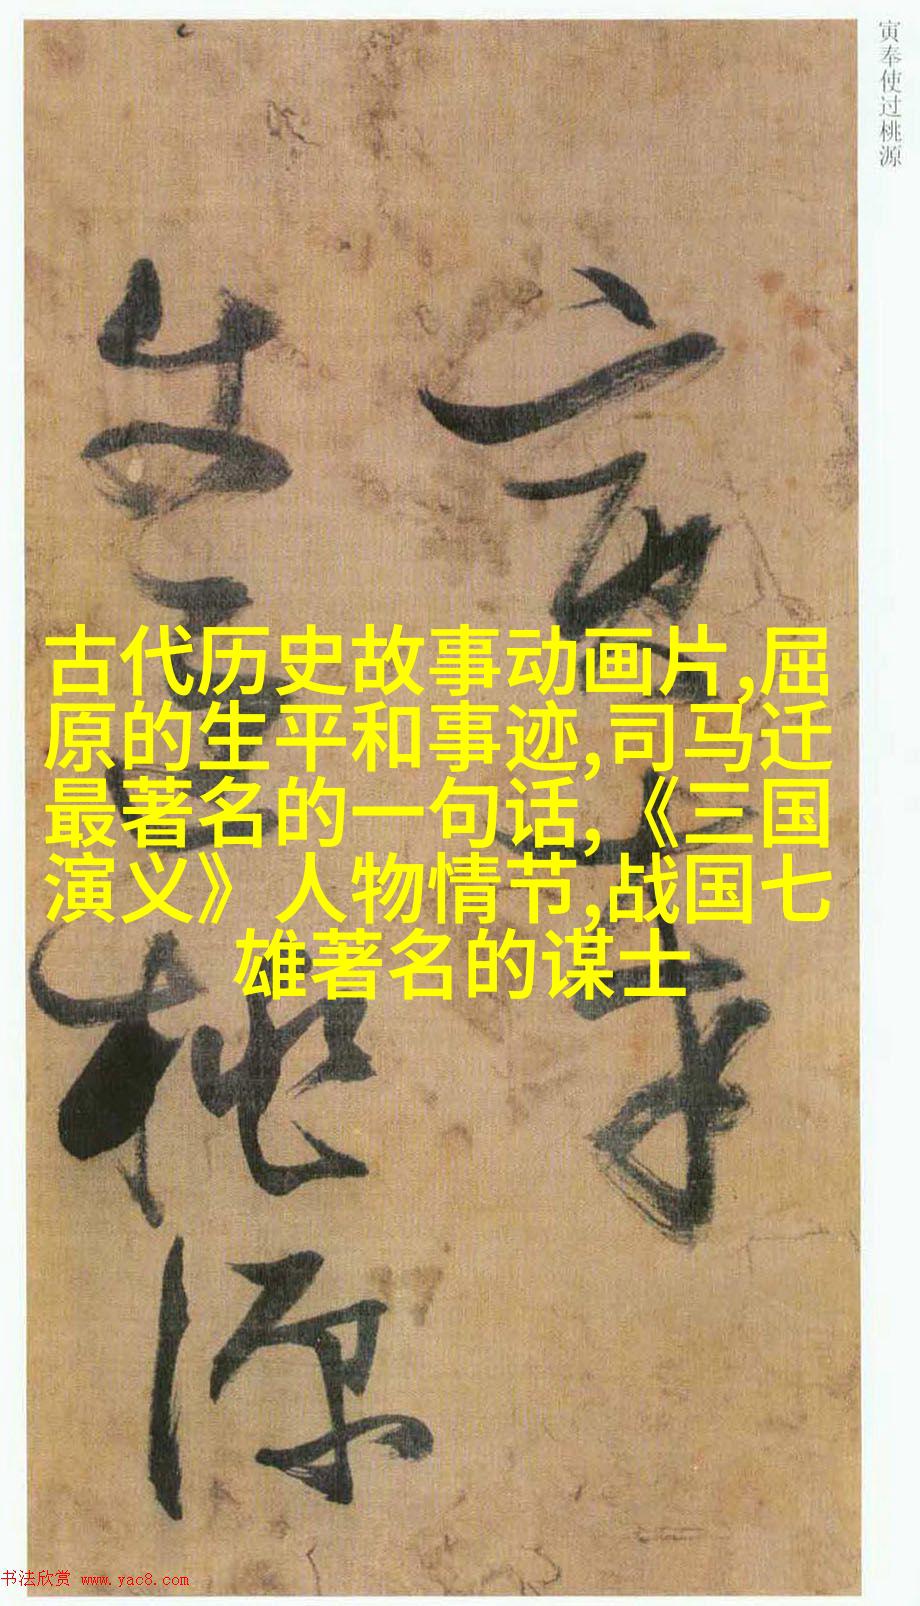 寅奉使过桃源
寅奉
使过桃源
古代历史故事动画片,屈
原的生平和事迹,司马迁
最著名的一句话,《三国
演义》人物情节,战国七
雄著名的谋士
书法欣赏 www.yac8.com